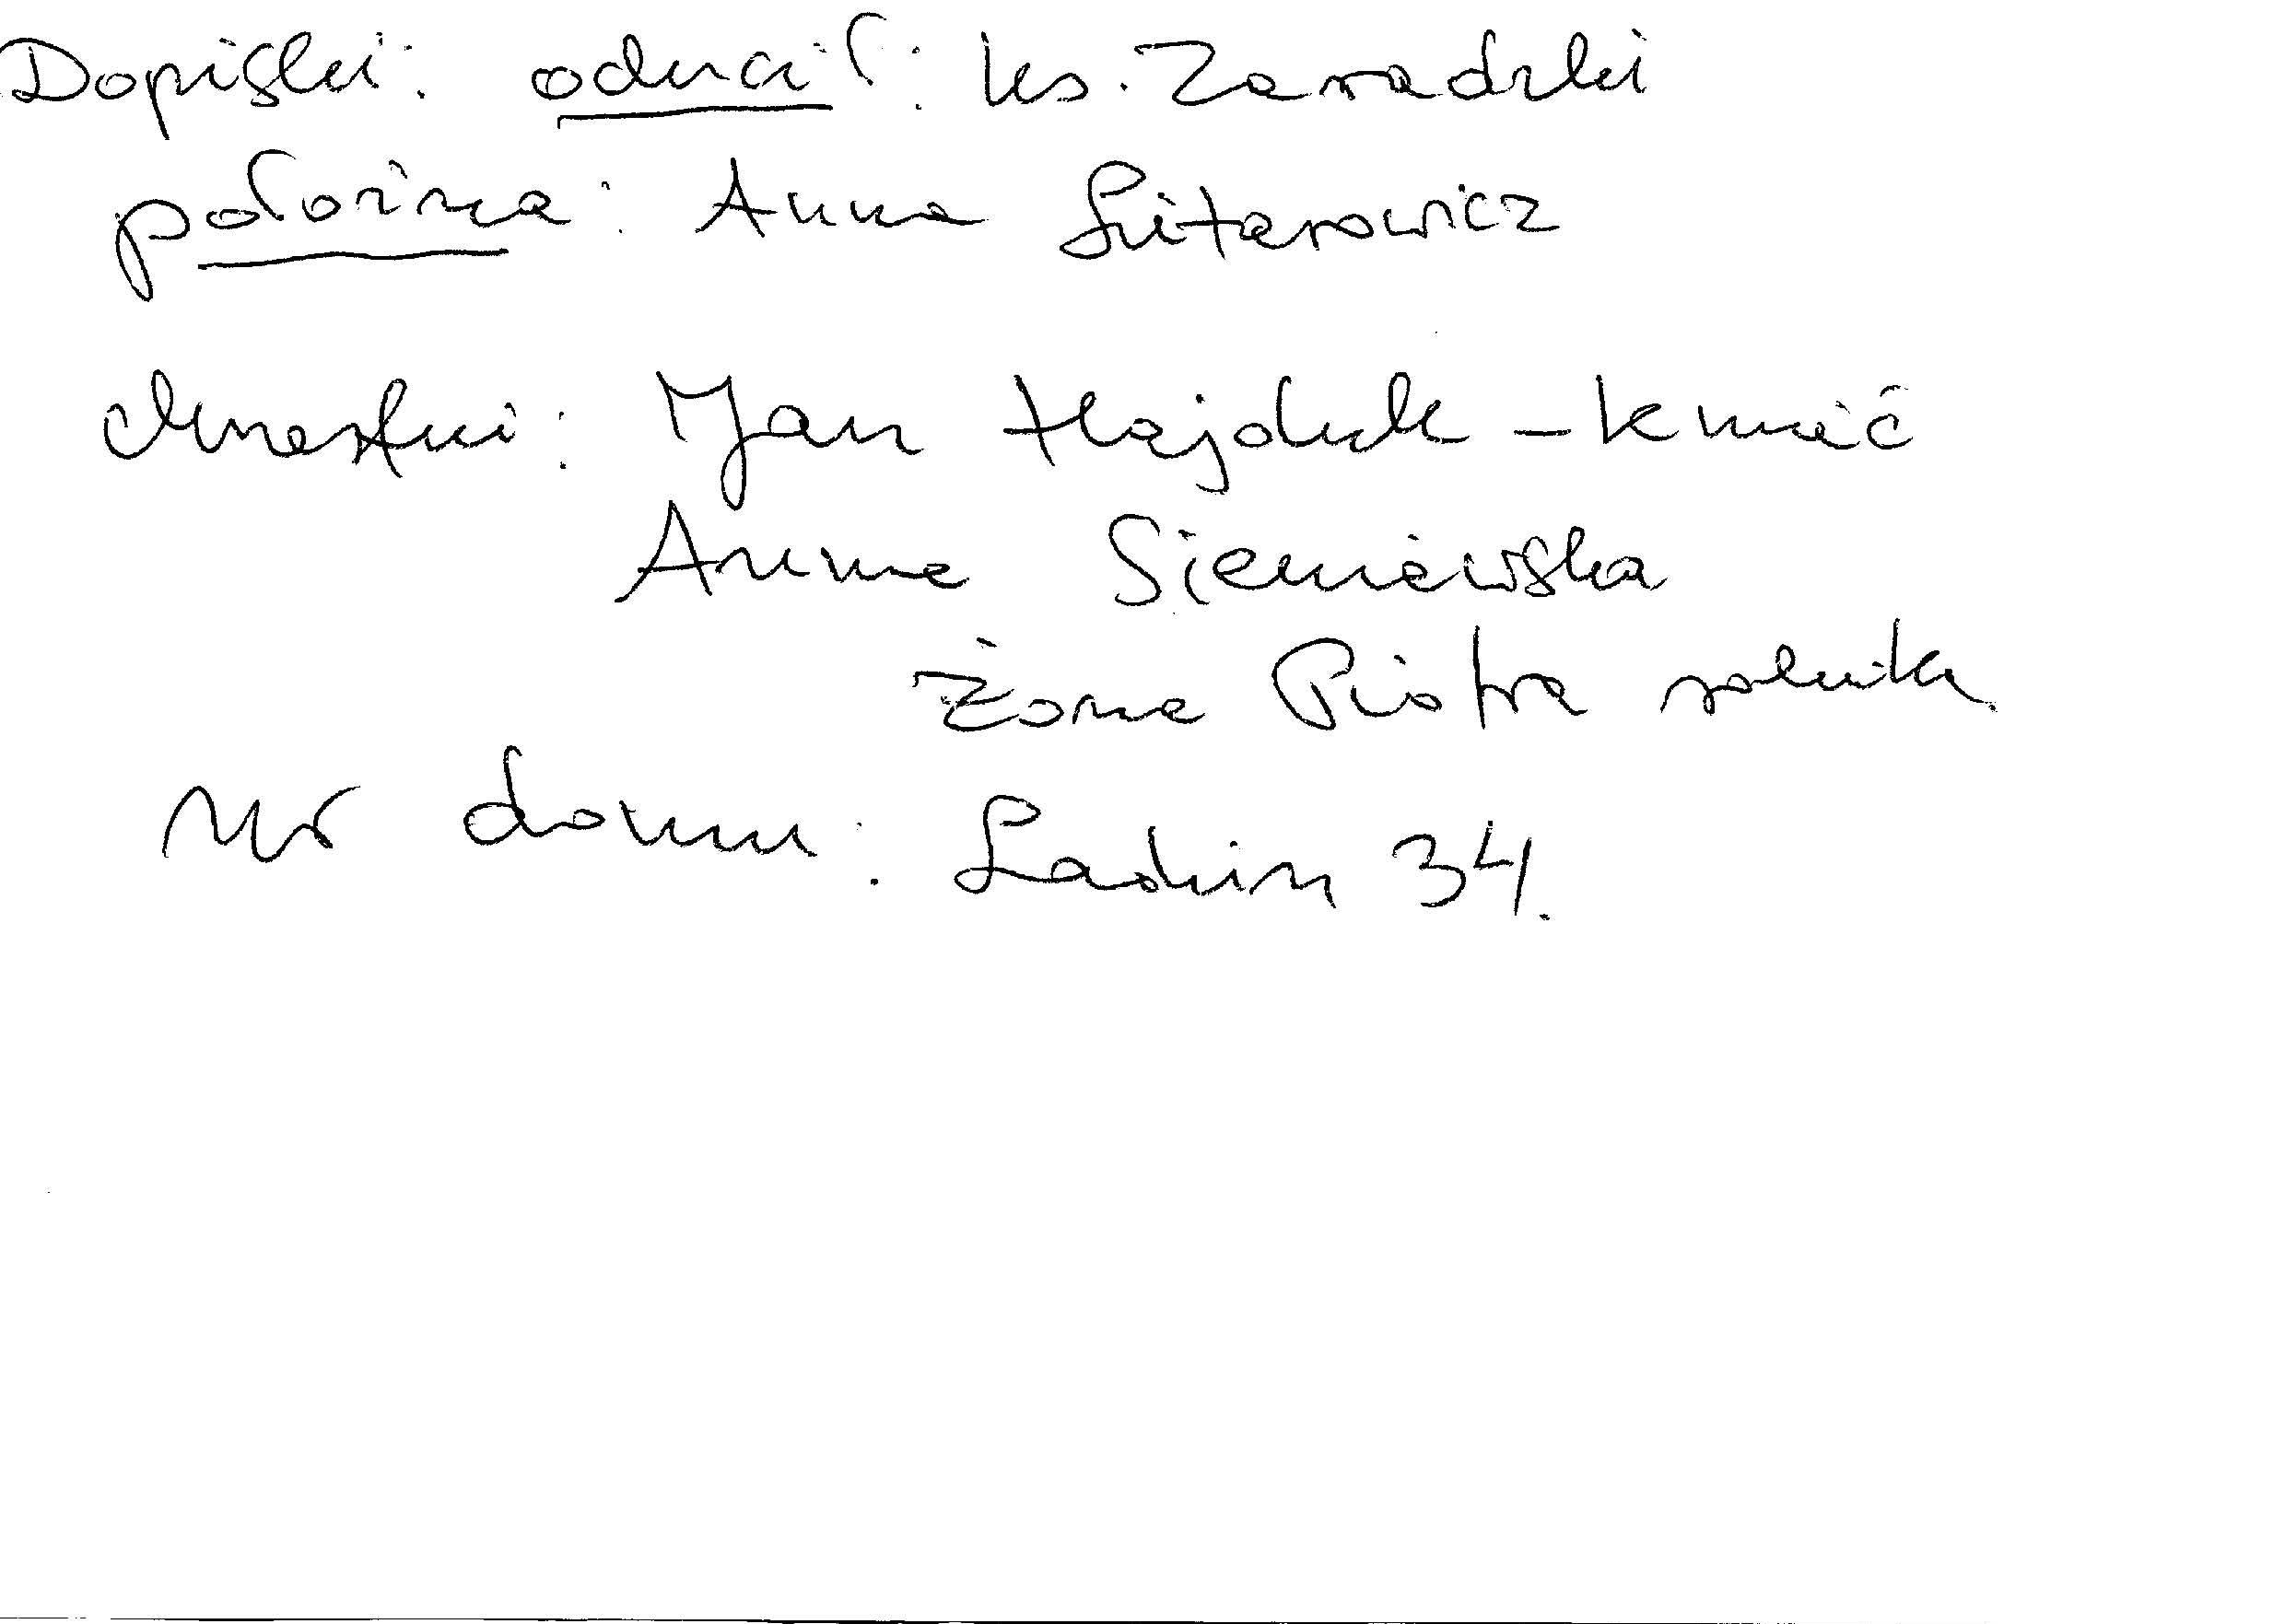 Dopiski: oducił: ks. Zawadzki
położna: Anna Litarowicz
chrzestni: Jan Hajduk – kmieć
Anna Sieniewska
żona Piotra rolnika
Nr domu: Ladzin 34.